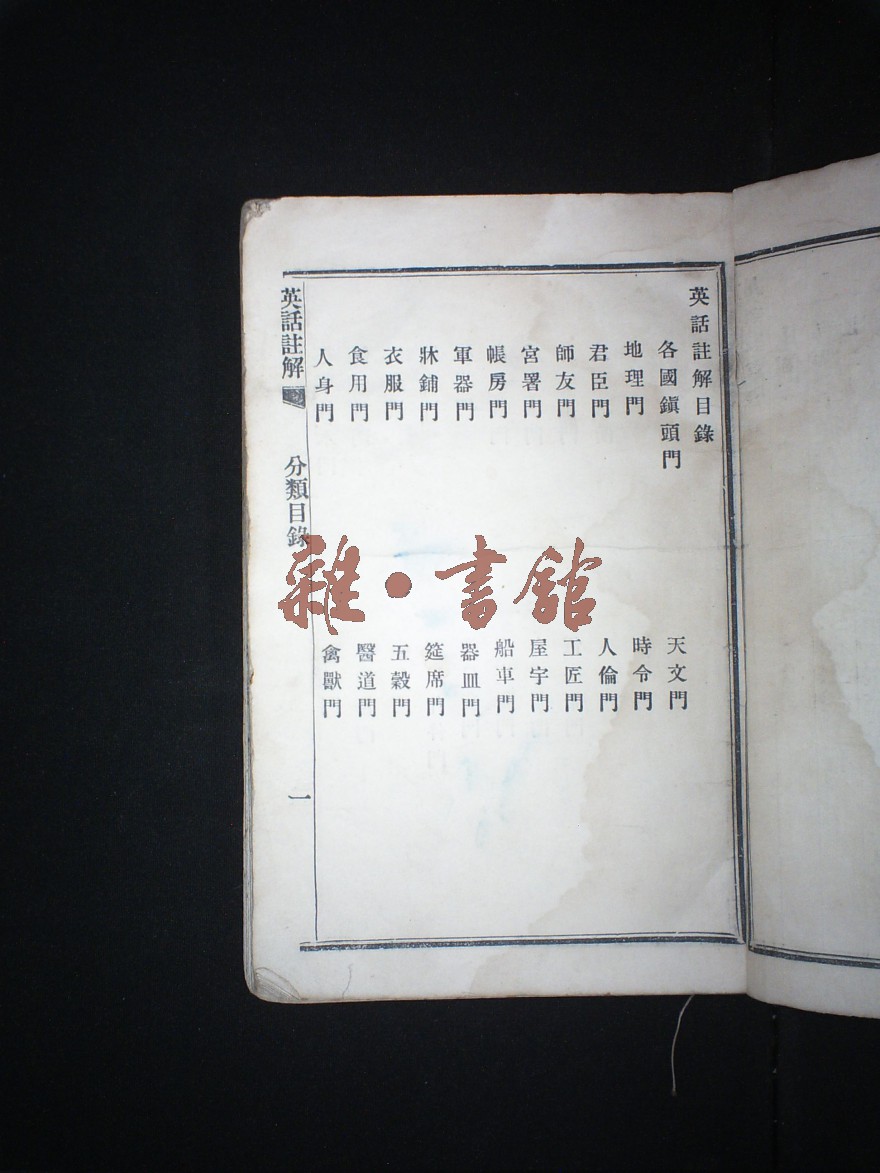 英話註解目錄
各國鎭頭門
天文門
地理門
時令門
君臣門
人倫門
師友門
工匠門
宮署門
屋宇門
帳房門
船車門
軍器門
器皿門
牀鋪門
筵席門
衣服門
五穀門
食用門
醫道門
人身門
禽獸門
英話註解
分類目錄
一
雜·書館